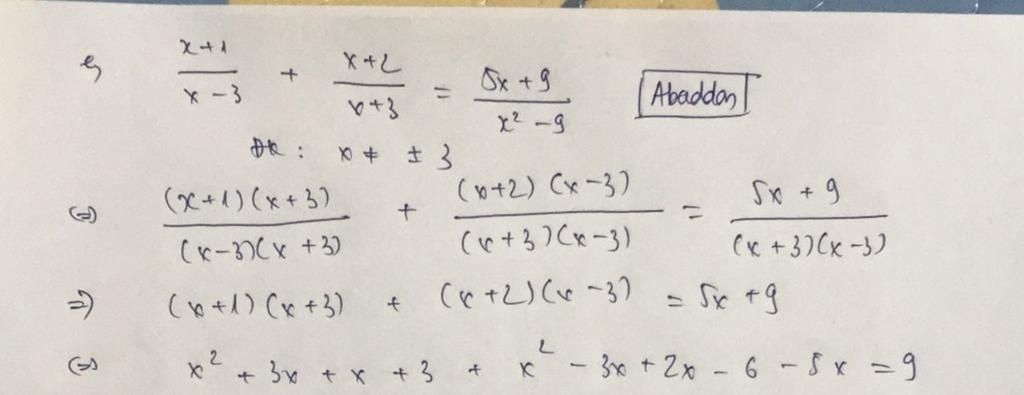 e, (x+1)/(x-3) + (x+2)/(x+3) = (5x+9)/(x²-9) Abaddon
ĐK : x ≠ ± 3
(=) ((x+1)(x+3))/((x-3)(x+3)) + ((x+2)(x-3))/((x+3)(x-3)) = (5x+9)/((x+3)(x-3))
=) (x+1)(x+3) + (x+2)(x-3) = 5x+9
(=) x² + 3x + x + 3 + x² - 3x + 2x - 6 - 5x = 9